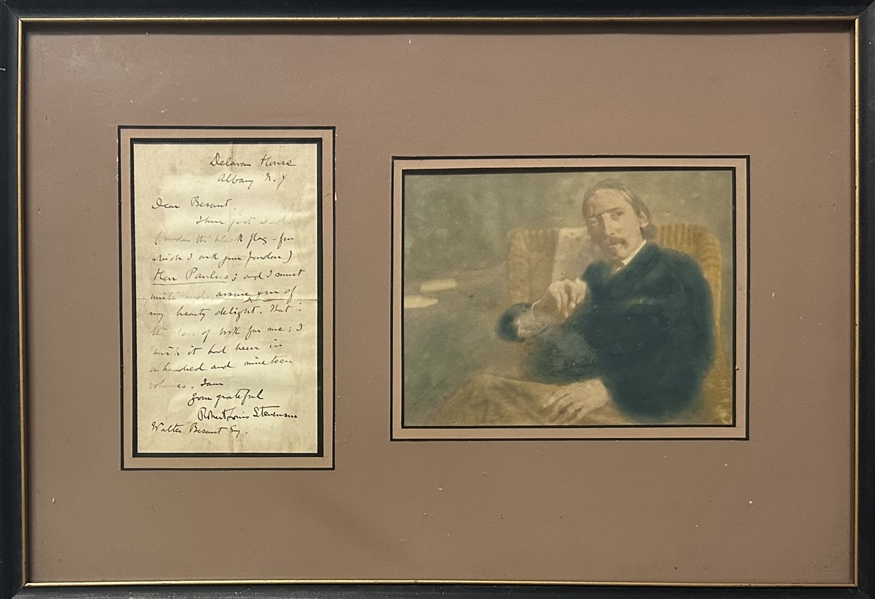 Delavan House
Albany N. Y
Dear Besant
I have just read
(under the black flag - for
which I ask your pardon)
Herr Paulus; and I must
write to assure you of
my hearty delight. That is
the of book for me; I
wish it had been in
a hundred and nineteen
volumes. I am
Yours gratefully
Robert Louis Stevenson
Walter Besant Esq.